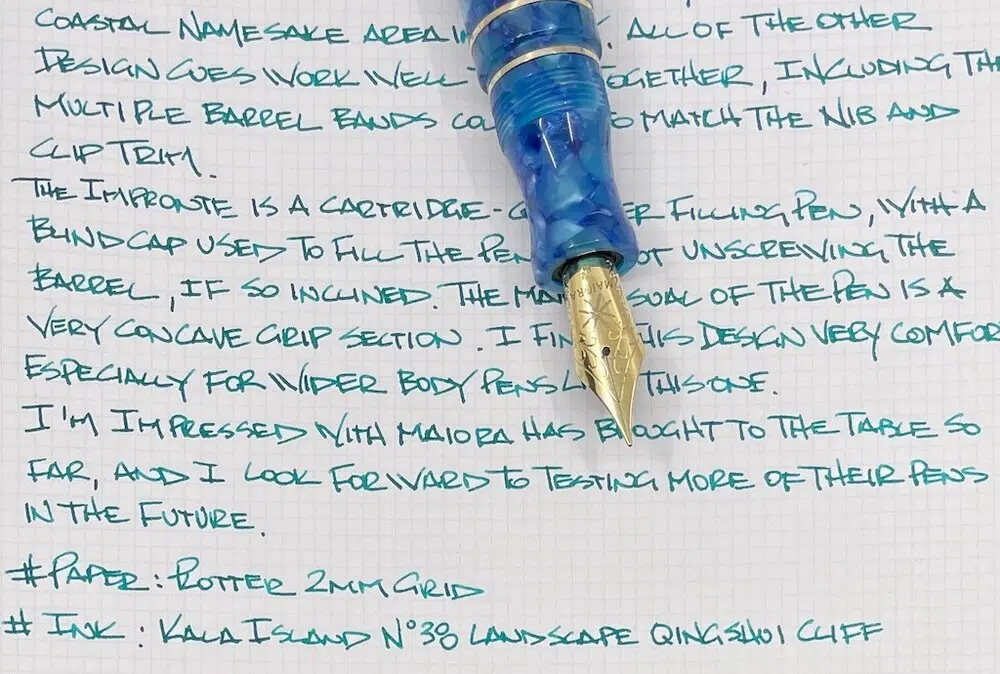 COASTAL NAMESAKE AREA IN . ALL OF THE OTHER
DESIGN CUES WORK WELL TOGETHER, INCLUDING TH
MULTIPLE BARREL BANDS CO TO MATCH THE NIB AND
CLIP TRIM.
THE IMPRONTE IS A CARTRIDGE-C ER FILLING PEN, WITH A
BLIND CAP USED TO FILL THE PEN OT UNSCREWING THE
BARREL, IF SO INCLINED. THE MA SUAL OF THE PEN IS A
VERY CONCAVE GRIP SECTION. I FIN THIS DESIGN VERY COMFOR
ESPECIALLY FOR WIDER BODY PENS L THIS ONE.
I'M IMPRESSED WITH MAIORA HAS BROUGHT TO THE TABLE SO
FAR, AND I LOOK FORWARD TO TESTING MORE OF THEIR PENS
IN THE FUTURE.
# PAPER: PLOTTER 2MM GRID
# INK: KALA ISLAND N°38 LANDSCAPE QINGSHUI CLIFF
MAIORA